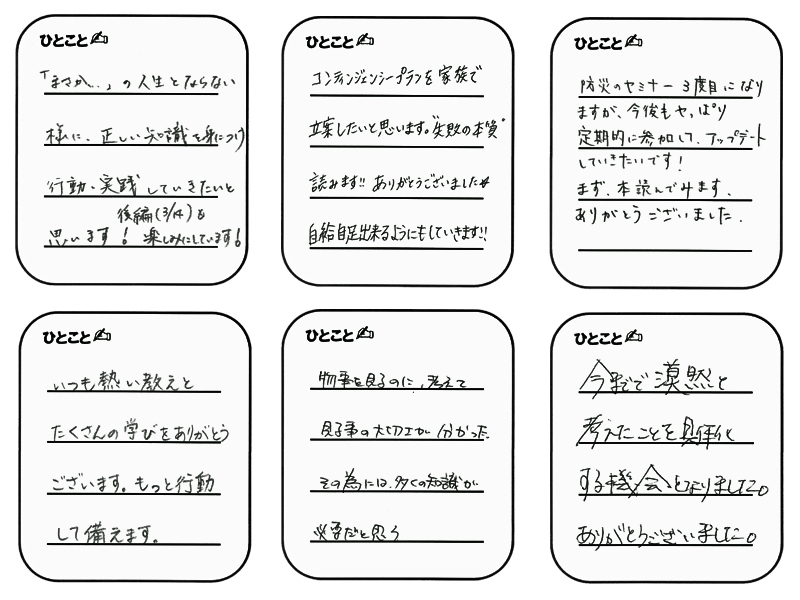 ひとこと✍
「まさか…」の人生とならない
様に、正しい知識を身につけ
行動・実践していきたいと
後編(3/14)も
思います! 楽しみにしています!
ひとこと✍
コンティンジェンシープランを家族で
立案したいと思います。"失敗の本質"
読みます!! ありがとうございました☆
自給自足出来るようにもしていきます!!
ひとこと✍
防災のセミナー3度目になり
ますが、今後もやっぱり
定期的に参加して、アップデート
していきたいです!
まず、本読んでみます、
ありがとうございました.
ひとこと✍
いつも熱い教えと
たくさんの学びをありがとう
ございます。もっと行動
して備えます。
ひとこと✍
物事を見るのに、考えて
見る事の大切さが分かった.
その為には、多くの知識が
必要だと思う
ひとこと✍
今まで漠然と
考えたことを具体化
する機会となりました。
ありがとうございました。